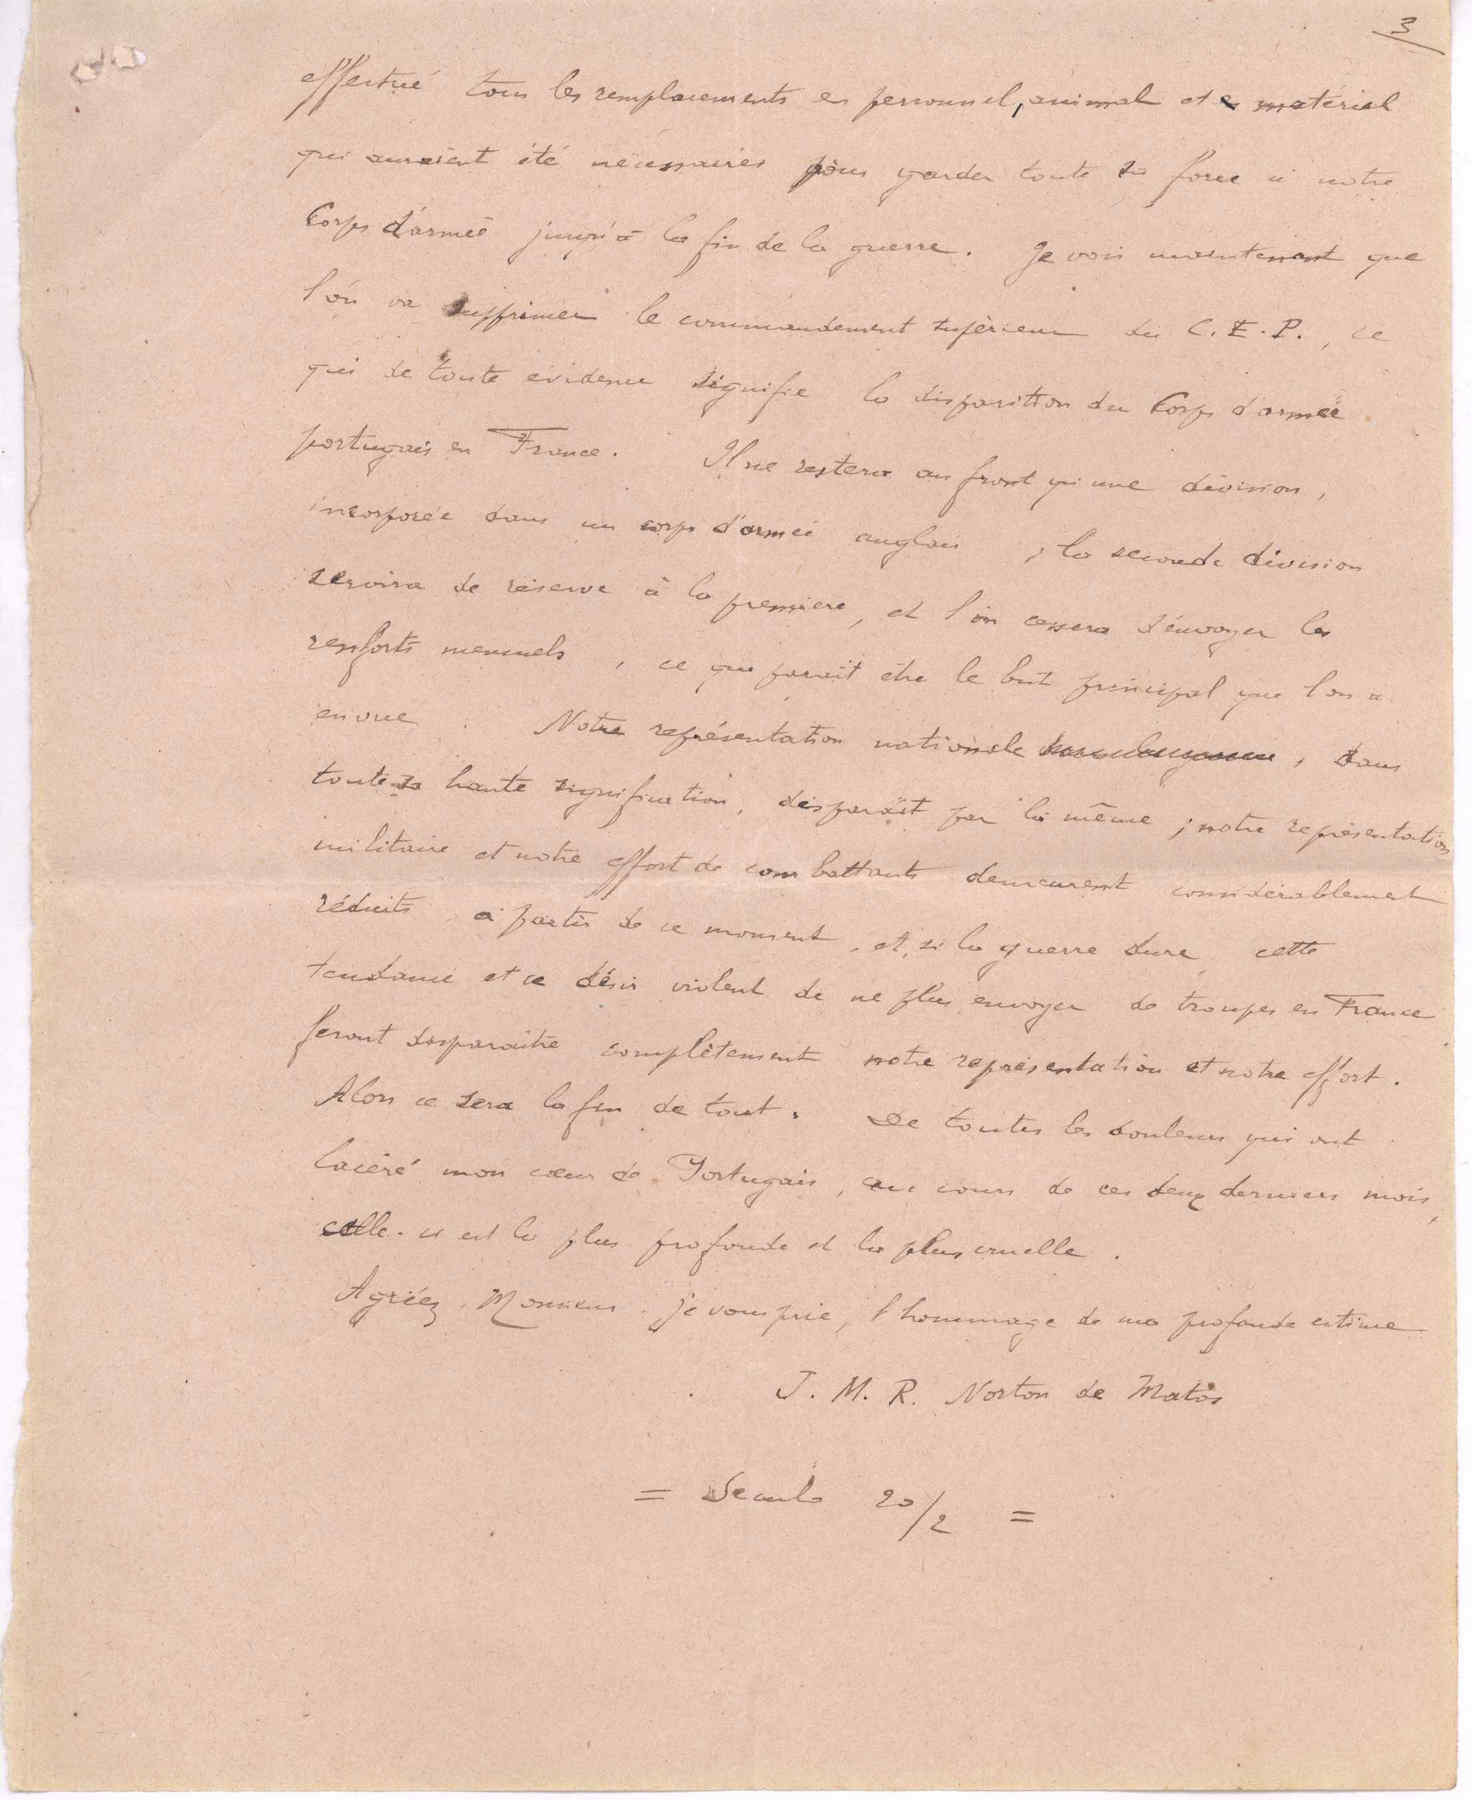 3
effectué tous les remplacements en personnel, animal et en matériel
qui auraient été nécessaires pour garder toute sa force à notre
Corps d'armée jusqu'à la fin de la guerre. Je vois maintenant que
l'on va supprimer le commandement supérieur du C.E.P., ce
qui de toute évidence signifie la disparition du Corps d'armée
portugais en France. Il ne restera au front qu'une division,
incorporée dans un corps d'armée anglais ; la seconde division
servira de réserve à la première, et l'on cessera d'envoyer les
renforts mensuels, ce qui paraît être le but principal que l'on a
en vue. Notre représentation nationale , dans
toute sa haute signification, disparaît par là même ; notre représentation
militaire et notre effort de combattants demeurent considérablement
réduits à partir de ce moment, et, si la guerre dure, cette
tendance et ce désir violent de ne plus envoyer de troupes en France
feront disparaître complètement notre représentation et notre effort.
Alors ce sera la fin de tout. De toutes les douleurs qui ont
lacéré mon cœur de Portugais, au cours de ces deux derniers mois,
celle-ci est la plus profonde et la plus cruelle.
Agréez, Monsieur, je vous prie, l'hommage de ma profonde estime
J. M. R. Norton de Matos
= Seculo 20/2 =